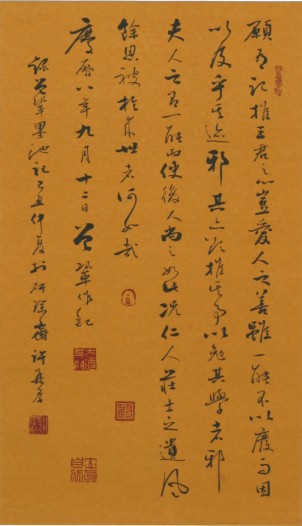 願有記推王君之心豈愛人之善雖一能不以廢而因
以及乎其迹邪其亦欲推其事以勉其學者邪
夫人之有一能而使後人尚之如此況仁人莊士之遺風
餘思被於來世者何如哉
慶曆八年九月十二日曾鞏作記
錄曾鞏墨池記己丑仲夏於研齋許